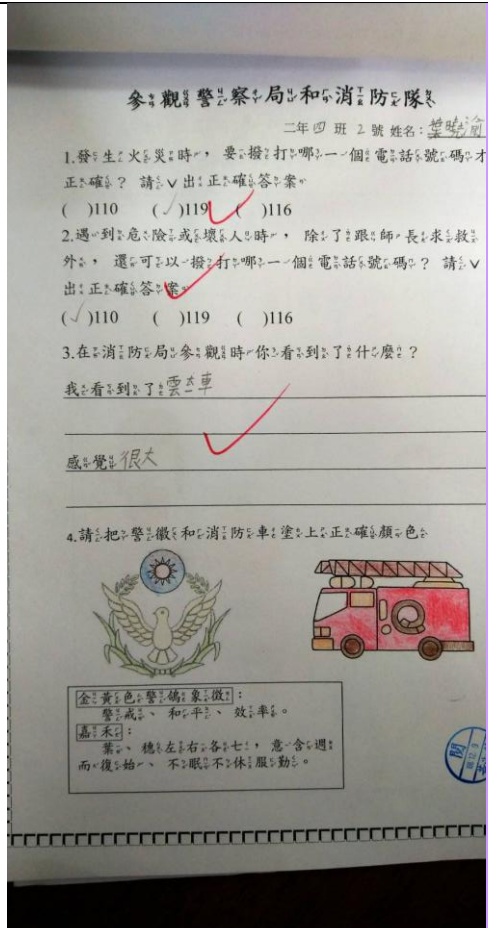 參觀警察局和消防隊
二年四班 2 號 姓名：葉曉渝
1.發生火災時，要撥打哪一個電話號碼才
正確？請ˇ出正確答案。
( )110 (✓)119 ( )116
2.遇到危險或壞人時，除了跟師長求救
外，還可以撥打哪一個電話號碼？請ˇ
出正確答案。
(✓)110 ( )119 ( )116
3.在消防局參觀時你看到了什麼？
我看到了雲ㄊㄧ車
感覺很大
4.請把警徽和消防車塗上正確顏色
金黃色警鴿象徵：
警戒、和平、效率。
嘉禾：
葉、穗左右各七，意含週
而復始、不眠不休服勤。
閱